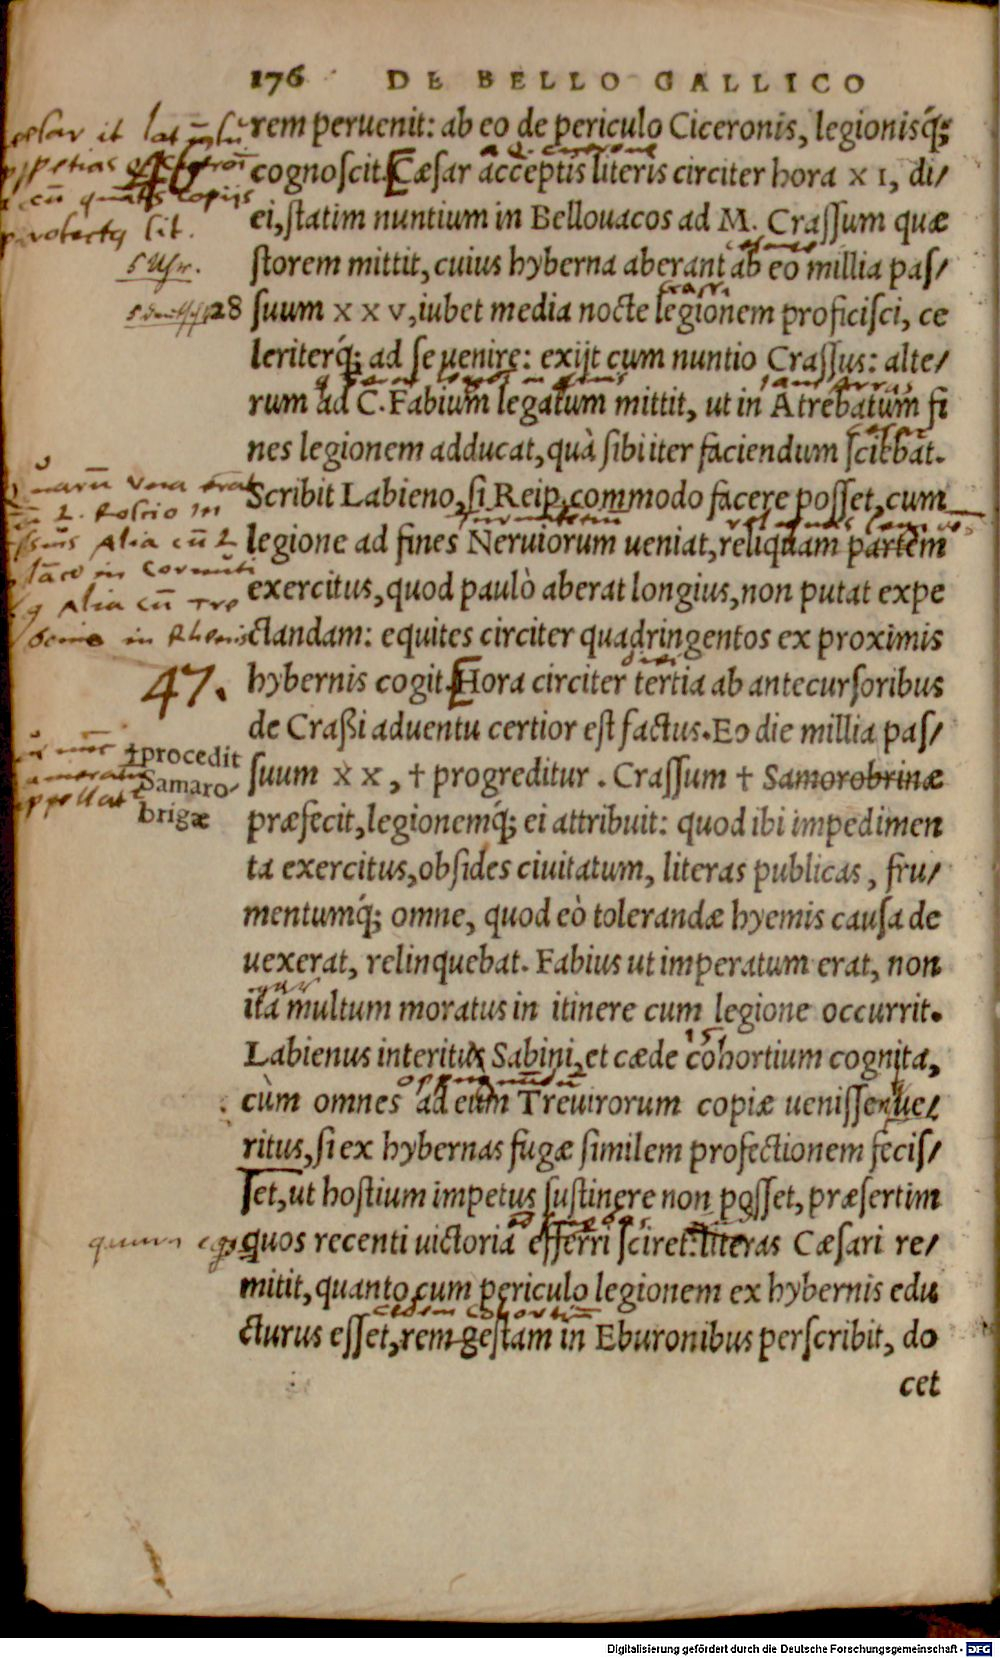 176 DE BELLO GALLICO
rem peruenit: ab eo de periculo Ciceronis, legionisq́;
cognoscit. Cæsar acceptis literis circiter hora XI, di/
ei, statim nuntium in Bellouacos ad M. Crassum quæ
storem mittit, cuius hyberna aberant ab eo millia pas/
suum XXV, iubet media nocte legionem proficisci, ce
leriterq́; ad se uenire: exijt cum nuntio Crassus: alte/
rum ad C. Fabium legatum mittit, ut in Atrebatum fi
nes legionem adducat, quà sibi iter faciendum sciebat.
Scribit Labieno, si Reip. commodo facere posset, cum
legione ad fines Neruiorum ueniat, reliquam partem
exercitus, quod paulò aberat longius, non putat expe
ctandam: equites circiter quadringentos ex proximis
47.
hybernis cogit. Hora circiter tertia ab antecursoribus
de Craßi aduentu certior est factus. Eo die millia pas/
†procedit
Samaro-
brigæ
suum XX, † progreditur. Crassum † Samorobrinæ
præfecit, legionemq́; ei attribuit: quod ibi impedimen
ta exercitus, obsides ciuitatum, literas publicas, fru/
mentumq́; omne, quod eò tolerandæ hyemis causa de
uexerat, relinquebat. Fabius ut imperatum erat, non
ita multum moratus in itinere cum legione occurrit.
15
Labienus interitu Sabini, et cæde cohortium cognita,
cùm omnes ad eum Treuirorum copiæ uenissent, ue/
ritus, si ex hybernas fugæ similem profectionem fecis/
set, ut hostium impetus sustinere non posset, præsertim
quos recenti uictoria efferri sciret: literas Cæsari re/
mitit, quanto cum periculo legionem ex hybernis edu
cturus esset, rem gestam in Eburonibus perscribit, do
cet
5 Uhr.
28
Digitalisierung gefördert durch die Deutsche Forschungsgemeinschaft - DFG